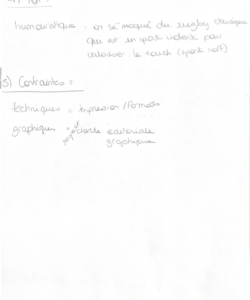 humoristique - on se moque du rugby classique
qui est un sport violent pour
valoriser le touch (sport soft)
5) Contraintes =
techniques = impression / formats
graphiques = charte éditoriale
graphique